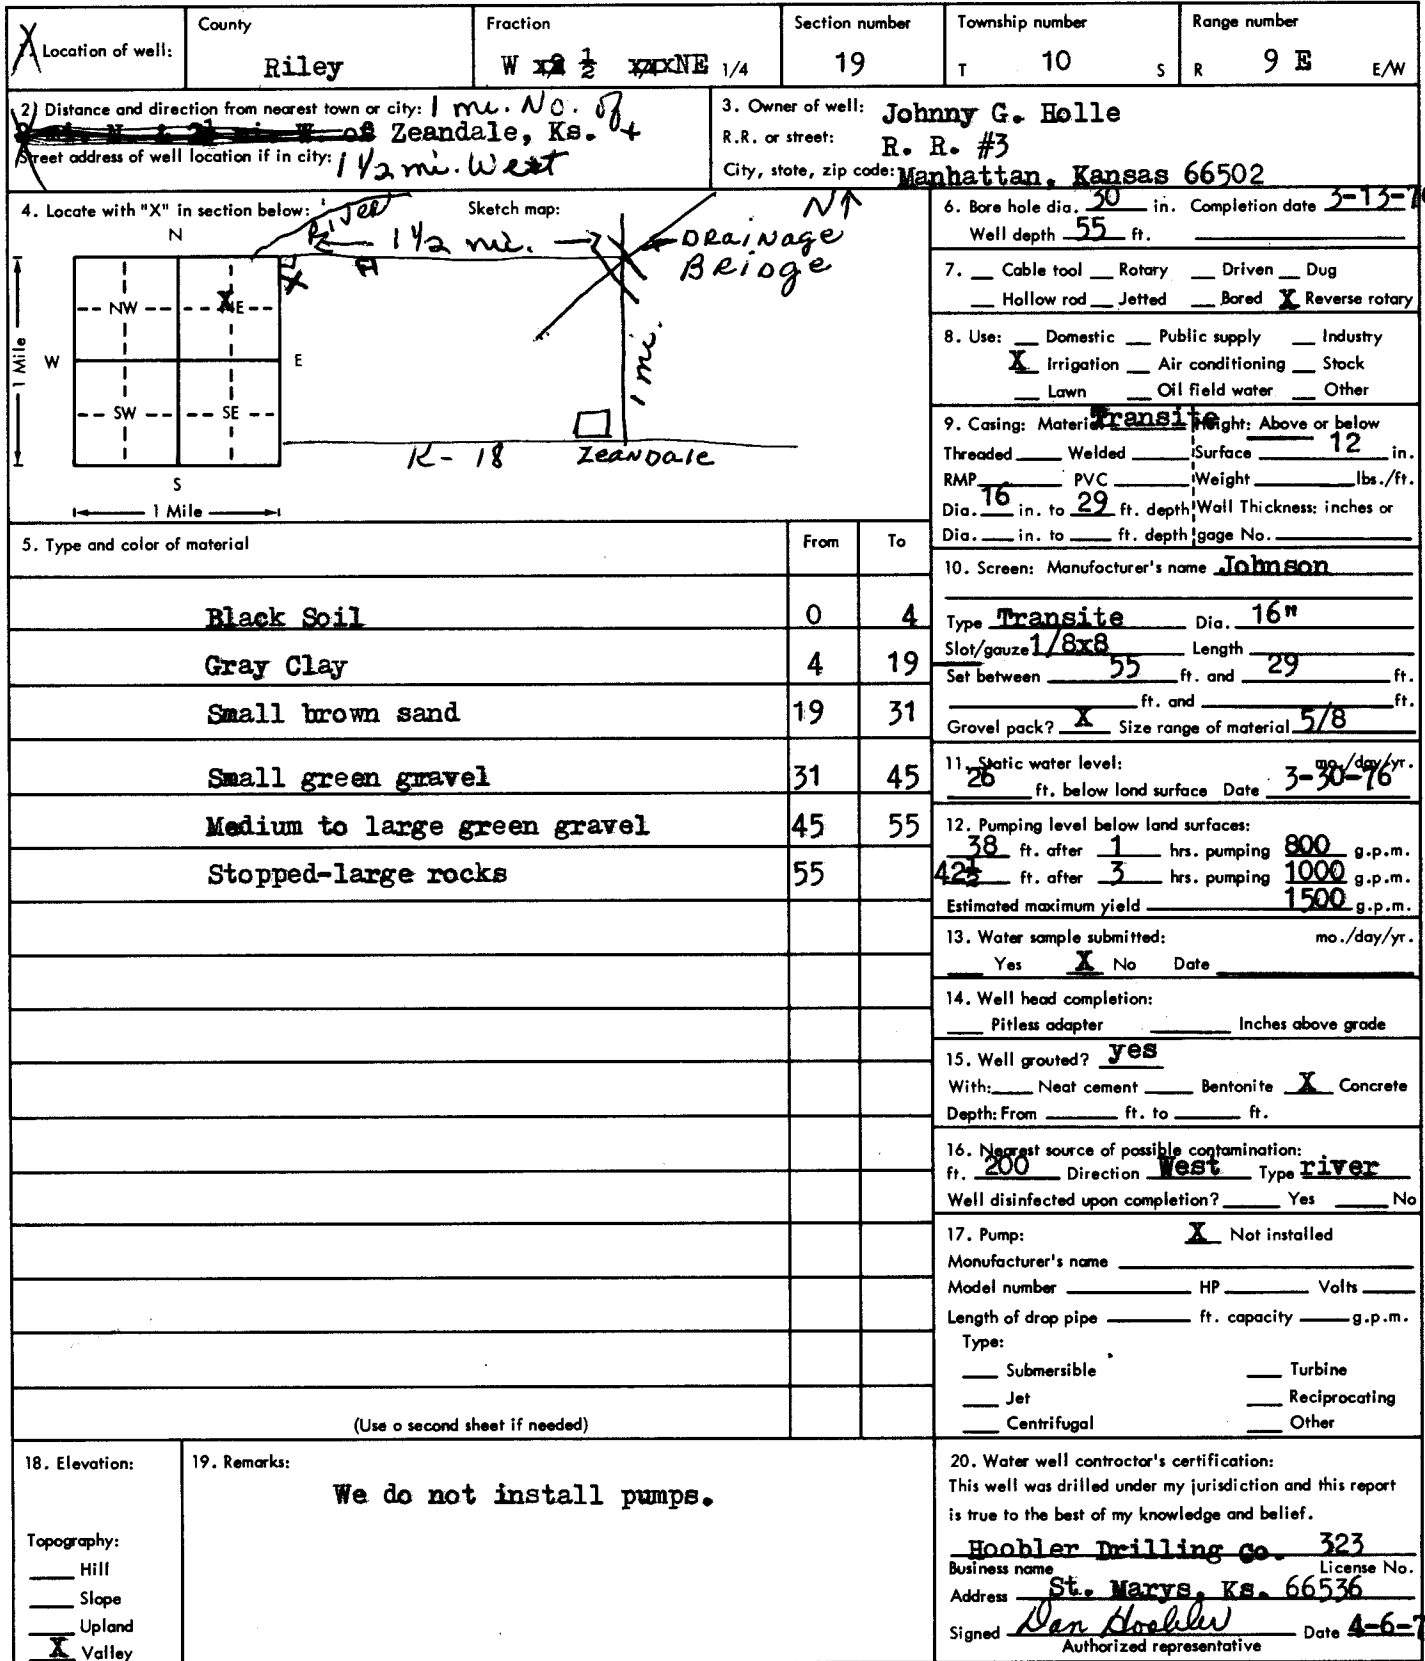 1. Location of well:
County
Riley
Fraction
W ½ NE 1/4
Section number
19
Township number
T 10 S
Range number
R 9 E E/W
2) Distance and direction from nearest town or city: 1 mi. No. of
Zeandale, Ks. +
Street address of well location if in city: 1 1/2 mi. West
3. Owner of well: Johnny G. Holle
R.R. or street: R. R. #3
City, state, zip code: Manhattan, Kansas 66502
4. Locate with "X" in section below:
Sketch map:
N
NW NE
W E
SW SE
S
1 Mile
1 Mile
X
River
1 1/2 mi.
N↑
DRAINAGE
BRIDGE
X
1 mi.
K-18
Zeandale
5. Type and color of material From To
Black Soil 0 4
Gray Clay 4 19
Small brown sand 19 31
Small green gravel 31 45
Medium to large green gravel 45 55
Stopped-large rocks 55
(Use a second sheet if needed)
6. Bore hole dia. 30 in. Completion date 3-13-7
Well depth 55 ft.
7. __ Cable tool __ Rotary __ Driven __ Dug
__ Hollow rod __ Jetted __ Bored X Reverse rotary
8. Use: __ Domestic __ Public supply __ Industry
X Irrigation __ Air conditioning __ Stock
__ Lawn __ Oil field water __ Other
9. Casing: Material Transite Height: Above or below
Threaded ____ Welded ____ Surface 12 in.
RMP ____ PVC ____ Weight ____ lbs./ft.
Dia. 16 in. to 29 ft. depth Wall Thickness: inches or
Dia. ___ in. to ___ ft. depth gage No. ____
10. Screen: Manufacturer's name Johnson
Type Transite Dia. 16"
Slot/gauze 1/8x8 Length ____
Set between 55 ft. and 29 ft.
____ ft. and ____ ft.
Gravel pack? X Size range of material 5/8
11. Static water level: mo./day/yr.
26 ft. below land surface Date 3-30-76
12. Pumping level below land surfaces:
38 ft. after 1 hrs. pumping 800 g.p.m.
42½ ft. after 3 hrs. pumping 1000 g.p.m.
Estimated maximum yield 1500 g.p.m.
13. Water sample submitted: mo./day/yr.
__ Yes X No Date ____
14. Well head completion:
__ Pitless adapter ____ Inches above grade
15. Well grouted? yes
With: __ Neat cement __ Bentonite X Concrete
Depth: From ____ ft. to ____ ft.
16. Nearest source of possible contamination:
ft. 200 Direction West Type river
Well disinfected upon completion? ____ Yes ____ No
17. Pump: X Not installed
Manufacturer's name ____
Model number ____ HP ____ Volts ____
Length of drop pipe ____ ft. capacity ____ g.p.m.
Type:
__ Submersible __ Turbine
__ Jet __ Reciprocating
__ Centrifugal __ Other
18. Elevation:
Topography:
__ Hill
__ Slope
__ Upland
X Valley
19. Remarks:
We do not install pumps.
20. Water well contractor's certification:
This well was drilled under my jurisdiction and this report
is true to the best of my knowledge and belief.
Hoobler Drilling Co. 323
Business name License No.
Address St. Marys, Ks. 66536
Signed Dan Hoobler Date 4-6-7
Authorized representative